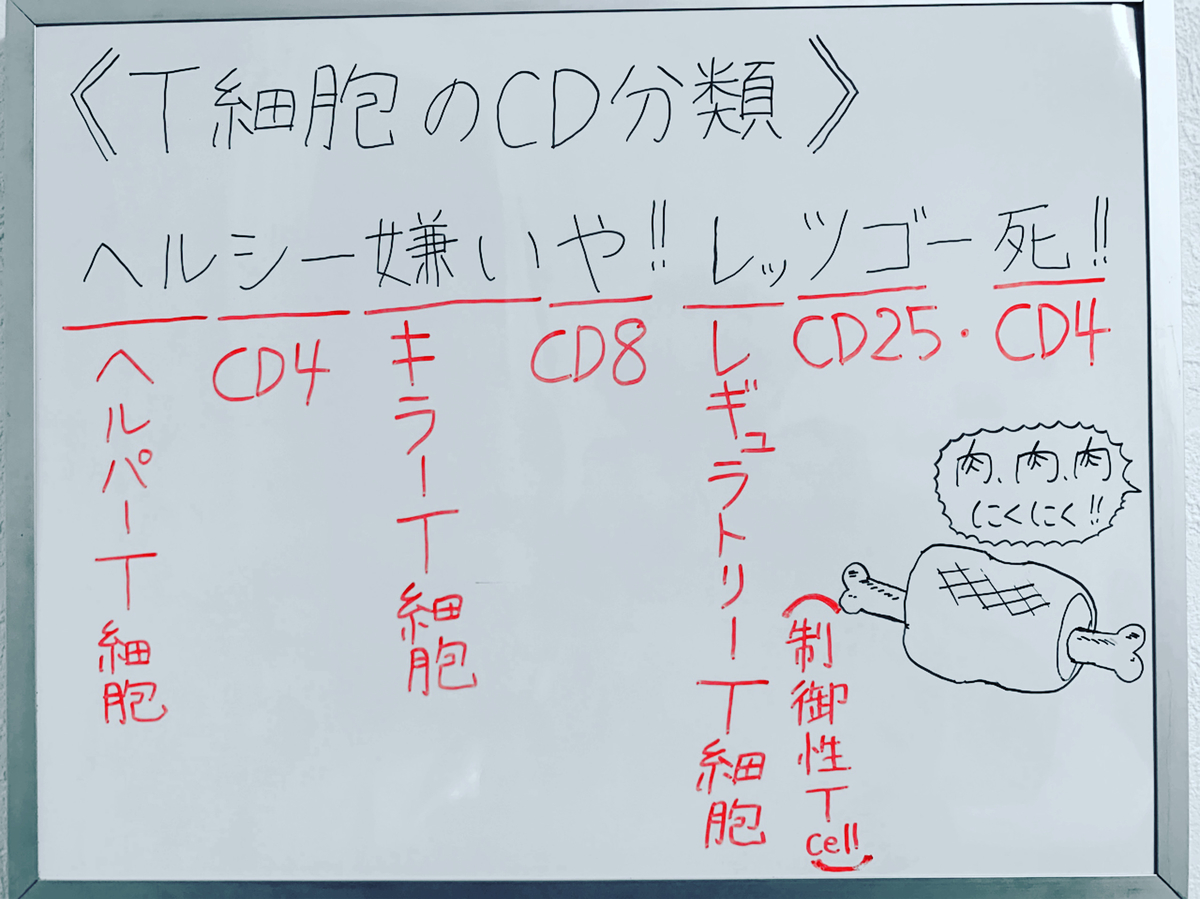 《T細胞のCD分類》
ヘルシー嫌いや!! レッツゴー死!!
ヘルパーT細胞
CD4
キラーT細胞
CD8
レギュラトリーT細胞
(制御性Tcell)
CD25・CD4
肉、肉、肉
にくにく!!